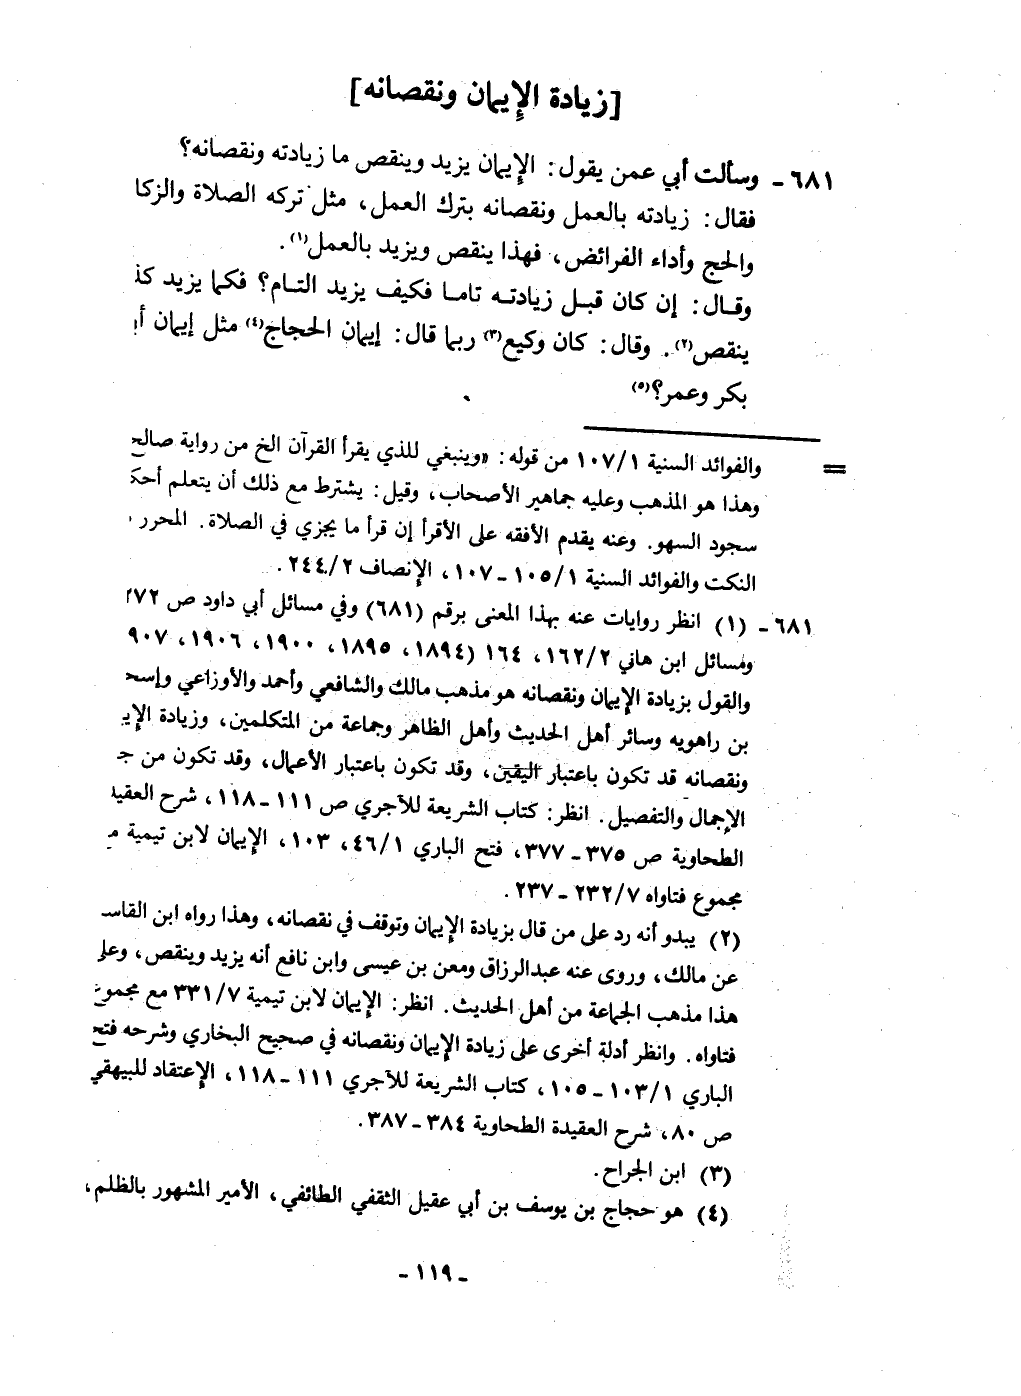 [زيادة الإيمان ونقصانه]
٦٨١ - وسألت أبي عمن يقول: الإيمان يزيد وينقص ما زيادته ونقصانه؟
فقال: زيادته بالعمل ونقصانه بترك العمل، مثل تركه الصلاة والزكا
والحج وأداء الفرائض، فهذا ينقص ويزيد بالعمل(١).
وقال: إن كان قبل زيادته تاما فكيف يزيد التام؟ فكما يزيد كذ
ينقص(٢). وقال: كان وكيع(٣) ربما قال: إيمان الحجاج(٤) مثل إيمان أبـ
بكر وعمر؟(٥)
= والفوائد السنية ١٠٧/١ من قوله: «وينبغي للذي يقرأ القرآن الخ من رواية صالح
وهذا هو المذهب وعليه جماهير الأصحاب، وقيل: يشترط مع ذلك أن يتعلم أحك
سجود السهو. وعنه يقدم الأفقه على الأقرأ إن قرأ ما يجزي في الصلاة. المحرر
النكت والفوائد السنية ١٠٥/١ - ١٠٧، الإنصاف ٢٤٤/٢.
٦٨١ - (١) انظر روايات عنه بهذا المعنى برقم (٦٨١) وفي مسائل أبي داود ص ٢٧٢
ومسائل ابن هاني ١٦٢/٢، ١٦٤ (١٨٩٤، ١٨٩٥، ١٩٠٠، ١٩٠٦، ٩٠٧
والقول بزيادة الإيمان ونقصانه هو مذهب مالك والشافعي وأحمد والأوزاعي وإسح
بن راهويه وسائر أهل الحديث وأهل الظاهر وجماعة من المتكلمين، وزيادة الإيـ
ونقصانه قد تكون باعتبار اليقين، وقد تكون باعتبار الأعمال، وقد تكون من جـ
الإجمال والتفصيل. انظر: كتاب الشريعة للآجري ص ١١١ - ١١٨، شرح العقيد
الطحاوية ص ٣٧٥ - ٣٧٧، فتح الباري ٤٦/١، ١٠٣، الإيمان لابن تيمية مـ
مجموع فتاواه ٢٣٢/٧ - ٢٣٧.
(٢) يبدو أنه رد على من قال بزيادة الإيمان وتوقف في نقصانه، وهذا رواه ابن القاسـ
عن مالك، وروى عنه عبدالرزاق ومعن بن عيسى وابن نافع أنه يزيد وينقص، وعلى
هذا مذهب الجماعة من أهل الحديث. انظر: الإيمان لابن تيمية ٣٣١/٧ مع مجموع
فتاواه. وانظر أدلة أخرى على زيادة الإيمان ونقصانه في صحيح البخاري وشرحه فتح
الباري ١٠٣/١ - ١٠٥، كتاب الشريعة للآجري ١١١ - ١١٨، الإعتقاد للبيهقي
ص ٨٠، شرح العقيدة الطحاوية ٣٨٤ - ٣٨٧.
(٣) ابن الجراح.
(٤) هو حجاج بن يوسف بن أبي عقيل الثقفي الطائفي، الأمير المشهور بالظلم،
- ١١٩ -